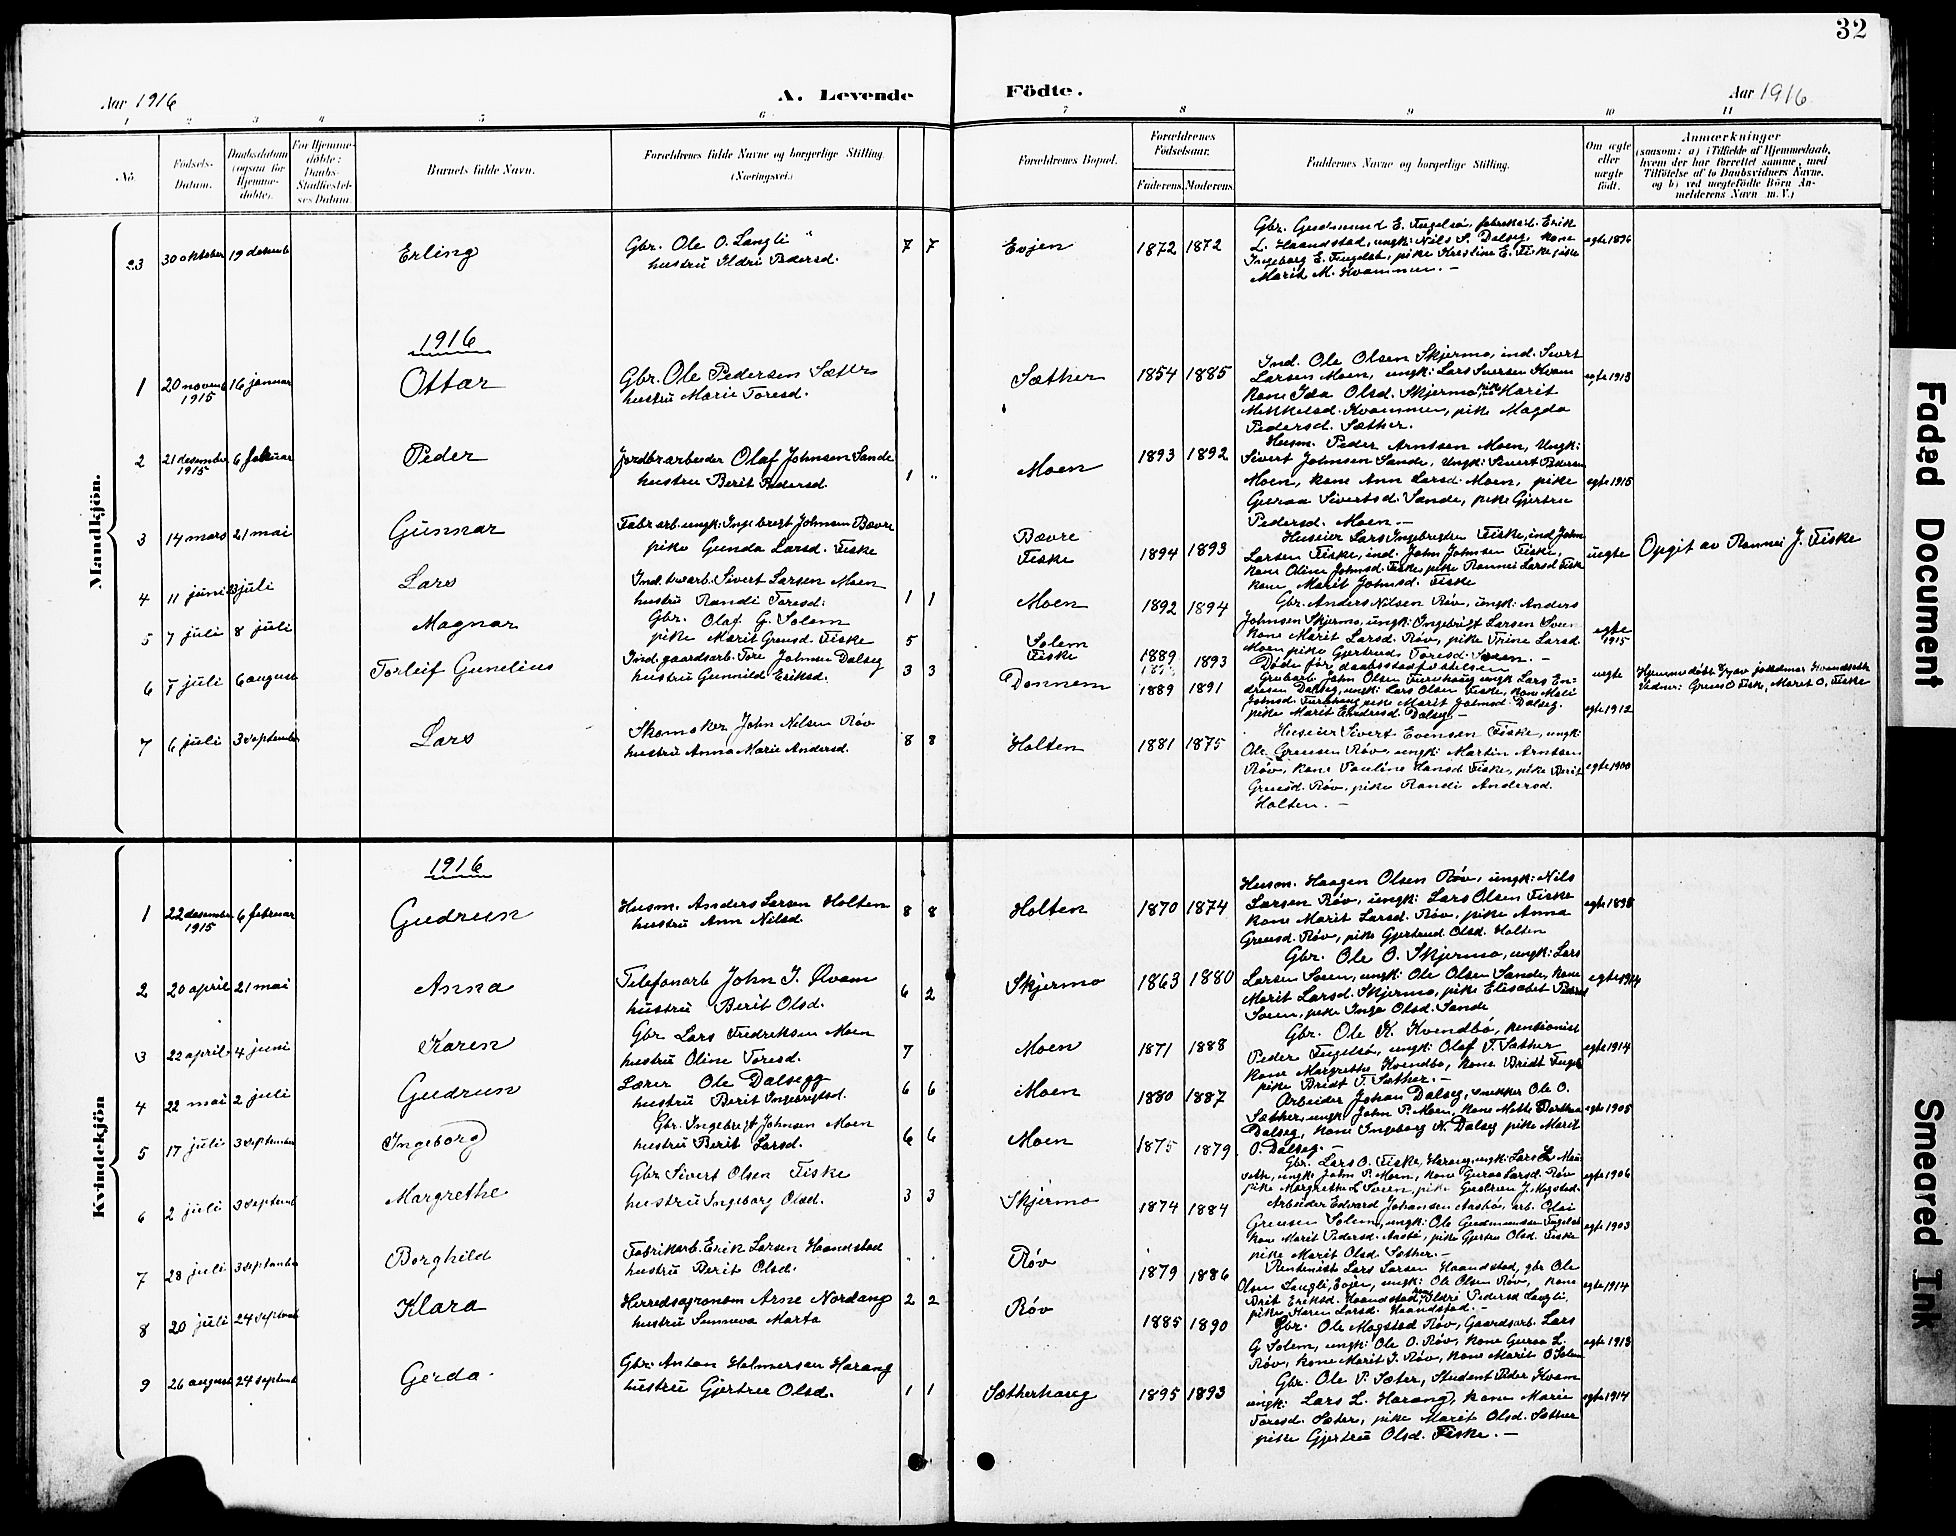 32
Aar 1916
A. Levende
Födte.
Aar 1916
1 2 3 4 5 6 7 8 9 10 11
No.
Födsels-Datum.
Daabsdatum (ogsaa for Hjemme-döbte).
For Hjemme-döbte: Daabs-Stadfæstel-ses Datum.
Barnets fulde Navn.
Forældrenes fulde Navne og borgerlige Stilling (Næringsvei.)
Forældrenes Bopæl.
Forældrenes Födselsaar.
Faderens. Moderens.
Faddernes Navne og borgerlige Stilling.
Om ægte eller uægte födt.
Anmærkninger
(saasom: a) i Tilfælde af Hjemmedaab, hvem der har forrettet samme, med Tilföielse af to Daabsvidners Navne, og b) ved uægtefödte Börn An-melderens Navn m. V.)
Mandkjön.
23 30 oktober 19 desemb Erling
Gbr. Ole O. Langli
hustru Ildri Pedersd.
7 7 Evjen 1872 1872
Gbr. Gudmund E. Fugelsø, fabrikarb. Erik
L. Haandstad, ungk: Nils S. Dalseg, kone
Ingeborg E. Fugelsø, pike Kristine E. Fiske pike
Marit M. Kvammen. —
egte 1896
1916
1 20 novemb 1915 16 januar Ottar
Gbr. Ole Pedersen Sæter
hustru Marie Toresd.
Sæther 1854 1885
Ind. Ole Olsen Skjermo, ind. Sivert
Larsen Moen, ungk: Lars Sversen Kvam
kone Ida Olsd. Skjermo, pike Marit
Mikkelsd. Kvammen, pike Magda
Pedersd. Sæther.
egte 1913
2 21 desember 1915 6 februar Peder
Jordbrarbeider Olaf Johnsen Sande
hustru Berit Pedersd.
1 " Moen 1893 1892
Husm. Peder Arntsen Moen, Ungk:
Sivert Johnsen Sande, Ungk: Sivert Pedersen
Moen, kone Ann Larsd. Moen, pike
Guraa Sivertsd. Sande, pike Gjertru
Pedersd. Moen —
egte 1915
3 14 mars 21 mai Gunnar
Fabr. arb. ungk: Ingebrigt Johnsen Bævre
pike Gunda Larsd. Fiske
Bævre
Fiske 1894 1893
Huseier Lars Ingebrigtsen Fiske, ind John
Larsen Fiske, ind. John Johnsen Fiske,
kone Oline Johnsd. Fiske, pike Rannei Larsd Fiske
kone Marit Johnsd. Fiske
uegte Opgit av Rannei J. Fiske
4 11 juni juli Lars
Ind. tvarb. Sivert Larsen Moen
hustru Randi Toresd.
1 1 Moen 1892 1894
Gbr. Anders Nilsen Røv, ungk: Anders
Johnsen Skjermo, ungk: Ingebrigt Larsen Sven
kone Marit Larsd. Røv, pike Trine Larsd.
Moen pike Gjertrud Toresd. Svean. —
egte 1915
5 7 juli 8 juli Magnar
Gbr. Olaf G. Solem
pike Marit Greusd. Fiske
5 Solem
Fiske 1889 1893
Døde før daabsstadfestelsen
uegte
6 7 juli 6 august Torleif Gunelius
Ind. gaardsarb. Tore Johnsen Dalseg
hustru Gunnild Eriksd.
3 3 Donnem 1889 1891
Grubarb. John Olsen Furuhaug ungk Lars En-
dresen Dalseg, ungk: Lars Olsen Fiske, kone Mali
Johnsd. Furuhaug pike Marit Johnsd. Dalseg.
pike Marit Endresd. Dalseg —
egte 1912
Vidner: Greus O Fiske, Maret O. Fiske
7 6 juli 3 september Lars
Skomaker John Nilsen Røv
hustru Anna Marie Andersd.
8 8 Holten 1881 1875
Huseier Sivert Evensen Fiske, ungk:
Ole Greusen Røv, ungk: Martin Arntsen
Røv, kone Pauline Hansd Fiske, pike Berit
Greusd. Røv, pike Randi Andersd.
Holten. —
egte 1900
Kvindekjön
1916
1 22 desember 1915 6 februar Gudrun
Husm. Anders Larsen Holten
hustru Ann Nilsd.
8 8 Holten 1870 1874
Husm. Haagen Olsen Røv, ungk: Nils
Larsen Røv, ungk: Lars Olsen Fiske
kone Marit Larsd. Røv, pike Anna
Greusd. Røv, pike Gjertrud Olsd. Holten
egte 1898
2 20 april 21 mai Anna
Telefonarb John I. Kvam
hustru Berit Olsd.
6 2 Skjermo 1863 1880
Gbr. Ole O. Skjermo, ungk: Lars
Larsen Svean, ungk: Ole Olsen Sande, kone
Marit Larsd. Skjermo, pike Elisabet
Svean, pike Inga Olsd. Sande
egte 1914
3 22 april 4 juni Karen
Gbr Lars Fredriksen Moen
hustru Oline Toresd.
7 Moen 1871 1888
Gbr. Ole K. Kvendbø, pensionist
Peder Fugelsø, ungk: Olaf T. Sæther
kone Margrethe Kvendbø, kone Bridt Fugels
pike Bridt T. Sæther. —
egte 1914
4 22 mai 2 juli Gudrun
Lærer Ole Dalsegg
hustru Berit Ingebrigtsd.
6 6 Moen 1880 1887
Arbeider Johan Dalseg, snekker Ole O.
Sæther, ungk John P. Moen, kone Mette Dorthea
Dalseg, kone Ingeborg N. Dalseg pike Marit
O. Dalseg. —
egte 1905
5 17 juli 3 september Ingeborg
Gbr. Ingebrigt Johnsen Moen
hustru Berit Larsd.
6 6 Moen 1875 1879
Gbr. Lars O. Fiske, Harang, ungk: Lars
ungk: John P. Moen, kone Guraa Larsd. Røv
pike Margrethe L Svean, pike Gustava J. Magstad.
egte 1906
6 2 juli 3 septemb Margrethe
Gbr Sivert Olsen Fiske
hustru Ingeborg Olsd.
3 3 Skjermo 1874 1884
Arbeider Edvard Johansen Aasbø, arb. Olai
Greusen Solem, ungk: Ole Gudmundsen Fugelsø
kone Marit Pedersd. Aasbø, pike Gjertru Olsd. Fiske
pike Marit Olsd. Sæther. —
egte 1903
7 28 juli 3 september Borghild
Fabrikarb. Erik Larsen Haandstad
hustru Berit Olsd.
Røv 1879 1886
Rentenist Lars Larsen Haandstad, gbr Ole
Olsen Langli, Evjen, ungk: Ole Olsen Røv, kone
Brit Eriksd. Haandstad, kone Ildri Pedersd Langli,
pike Karen Larsd. Haandstad. —
egte 1914
8 20 juli 24 septemb Klara
Herredsagronom Arne Nordang
hustru Sunneva Marta
2 2 Røv 1885 1890
Gbr. Ole Magstad Røv, Gaardsarb. Lars
G Solem, ungk: Ole O. Røv, kone Guraa L.
Røv, kone Marit I. Røv, kone Marit O Solem
egte 1913
9 26 august 24 septemb Gerda.
Gbr: Anton Halmersen Harang
hustru Gjertru Olsd.
1 1 Sætherhaug 1895 1893
Gbr. Ole P. Sæter, Student Peder Kvam
ungk: Lars L. Harang, kone Marie
Toresd. Sæter, pike Marit Olsd. Sæther
pike Gjertru Olsd. Fiske. —
egte 1914
Faded Document
Smeared Ink